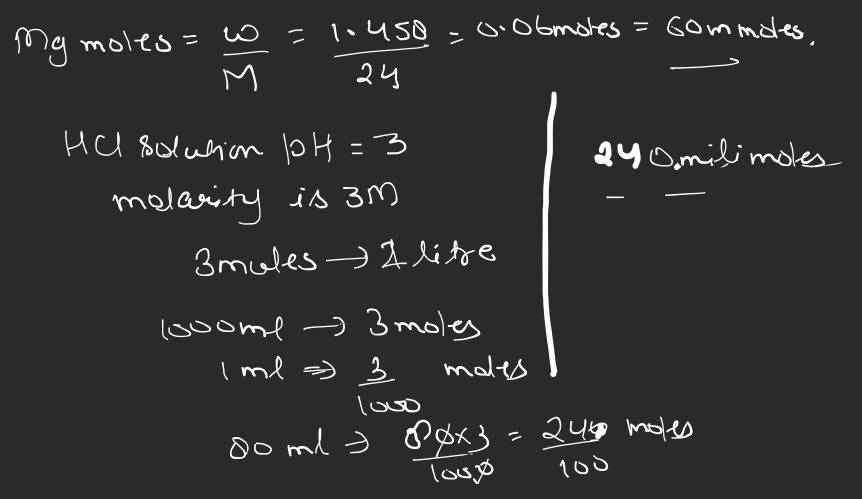 Mg moles = w/M = 1.450/24 = 0.06moles = 60m moles.
HCl solution pH = 3
molarity is 3M
240.milimoles
3moles → 1 litre
1000ml → 3 moles
1 ml ⇒ 3/1000 moles
80 ml → 80×3/1000 = 24/100 moles